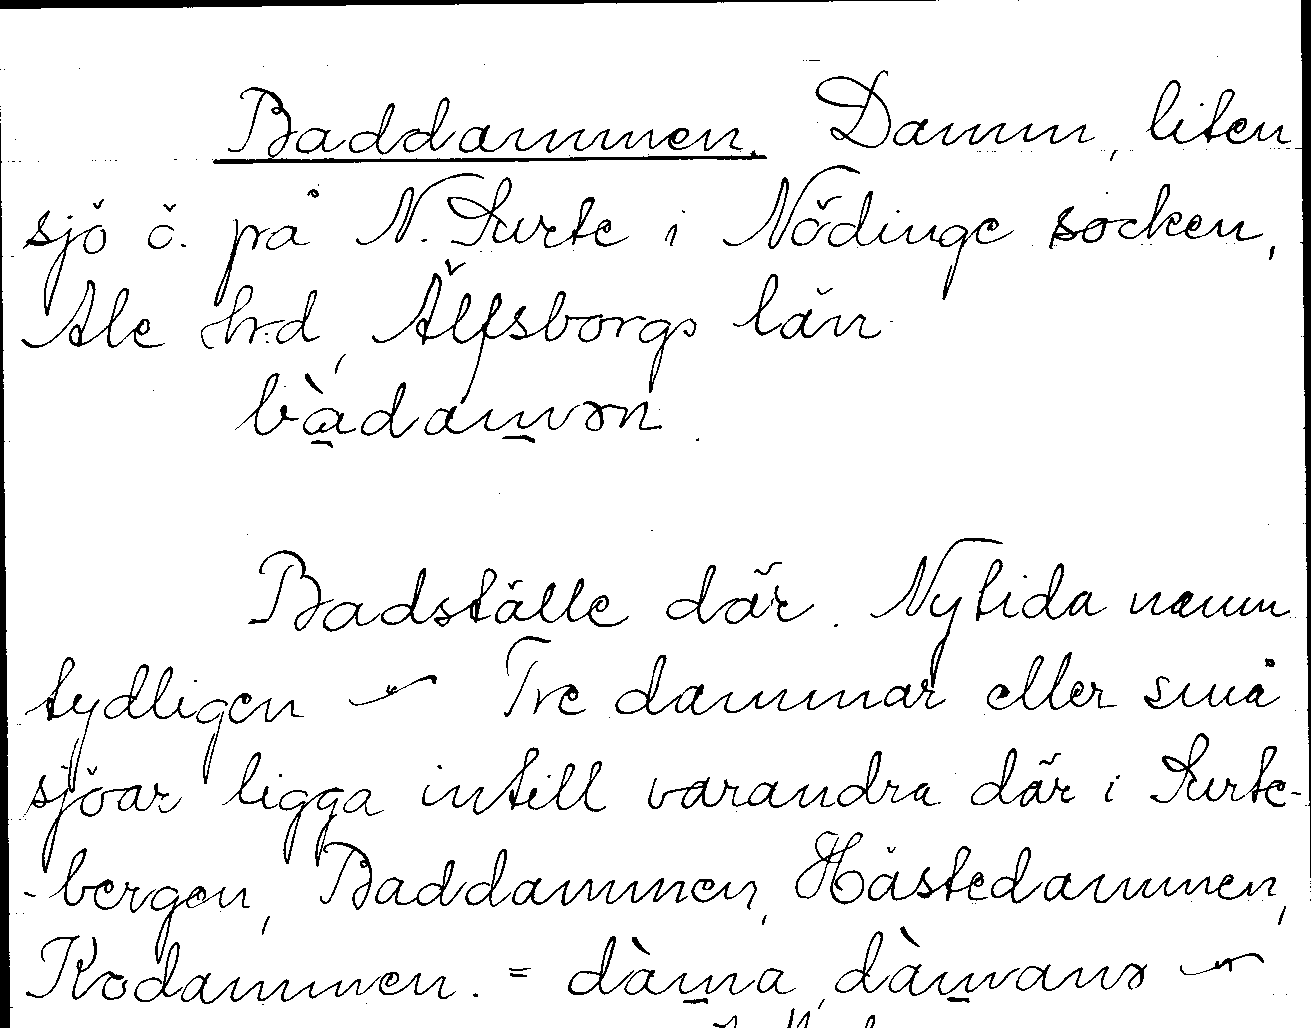 Baddammen. Damm, liten
sjö ö. på N. Surte i Nödinge socken,
Ale hrd, Älfsborgs län
bàdamən.
Badställe där. Nytida namn
tydligen Tre dammar eller små
sjöar ligga intill varandra där i Surte-
-bergen, Baddammen, Hästedammen,
Kodammen. =